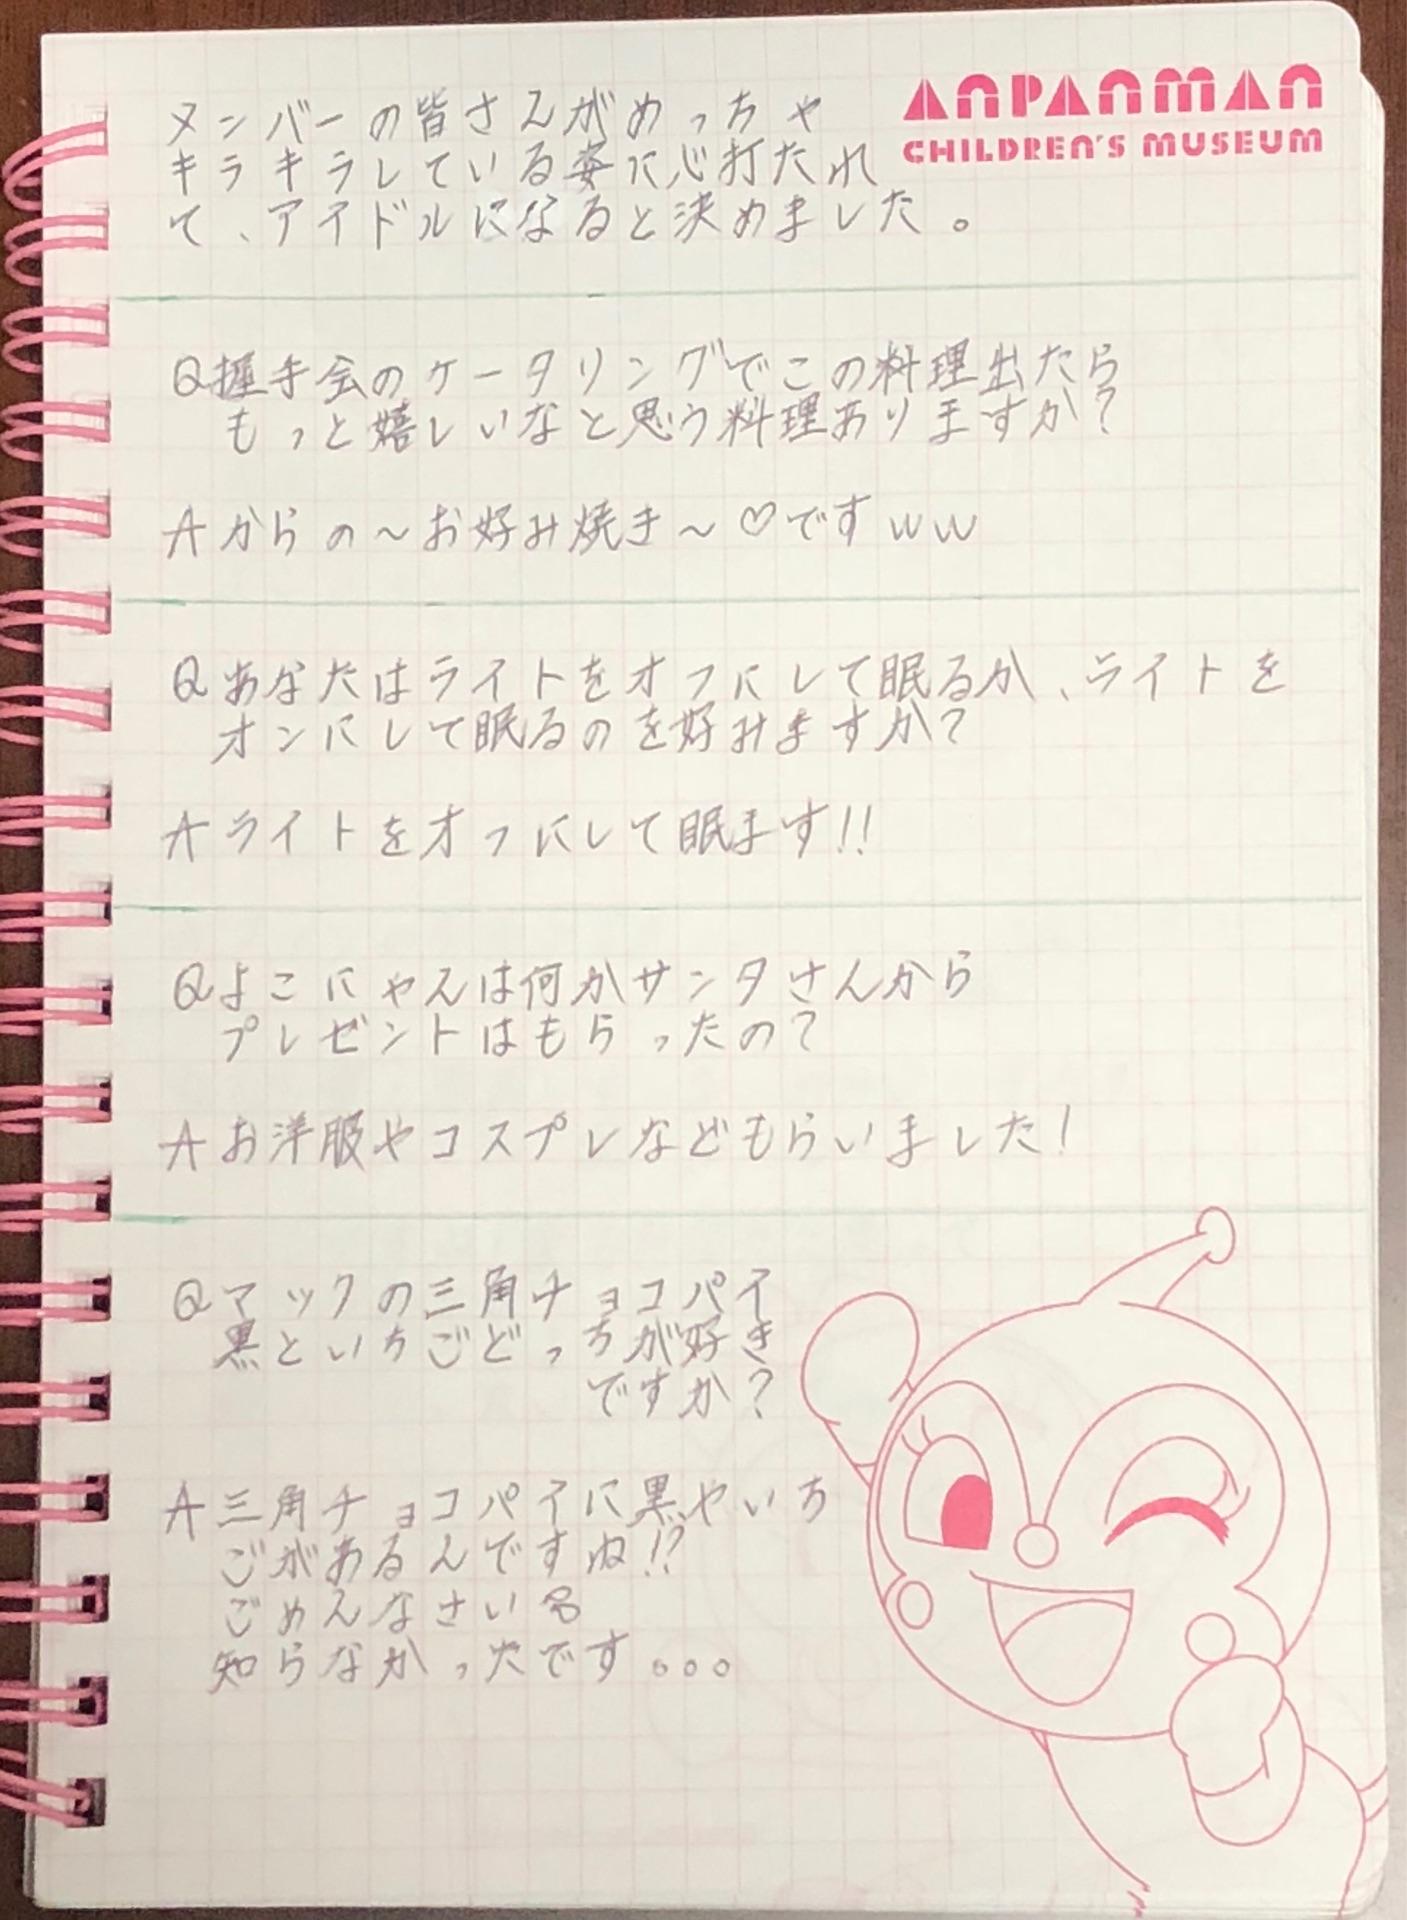 ANPANMAN
CHILDREN'S MUSEUM
メンバーの皆さんがめっちゃ
キラキラしている姿に心打たれ
て、アイドルになると決めました。
Q握手会のケータリングでこの料理出たら
もっと嬉しいなと思う料理ありますか?
Aからの〜お好み焼き〜♡ですww
Qあなたはライトをオフにして眠るか、ライトを
オンにして眠るのを好みますか?
Aライトをオフにして眠ます!!
Qよこにゃんは何かサンタさんから
プレゼントはもらったの?
Aお洋服やコスプレなどもらいました!
Qマックの三角チョコパイ
黒といちごどっちが好き
ですか?
A三角チョコパイに黒やいち
ごがあるんですね!?
ごめんなさい
知らなかったです。。。